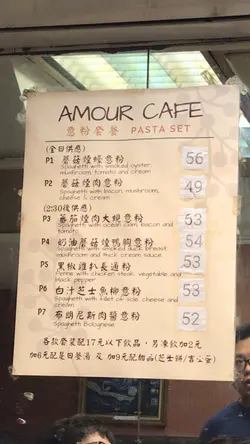 AMOUR CAFE
意粉套餐 PASTA SET
(全日供應)
P1 蘑菇煙蠔意粉 56
Spaghetti with smoked oyster,
mushroom, tomato and cream
P2 蘑菇煙肉意粉 49
Spaghetti with bacon, mushroom,
cheese & cream
(2:30後供應)
P3 蕃茄煙肉大蜆意粉 63
Spaghetti with ocean clam, bacon and
tomato
P4 奶油蘑菇煙鴨胸意粉 54
Spaghetti with smoked duck breast,
mushroom and thick cream sauce
P5 黑椒雞扒長通粉 53
Penne with chicken steak, vegetable and
black pepper
P6 白汁芝士魚柳意粉 53
Spaghetti with fillet of sole, cheese and
cream
P7 布朗尼斯肉醬意粉 52
Spaghetti Bolognese
各款套裝配17元以下飲品，另凍飲加2元
加6元配是日餐湯 及 加9元配甜品(芝士餅/吉士盃)